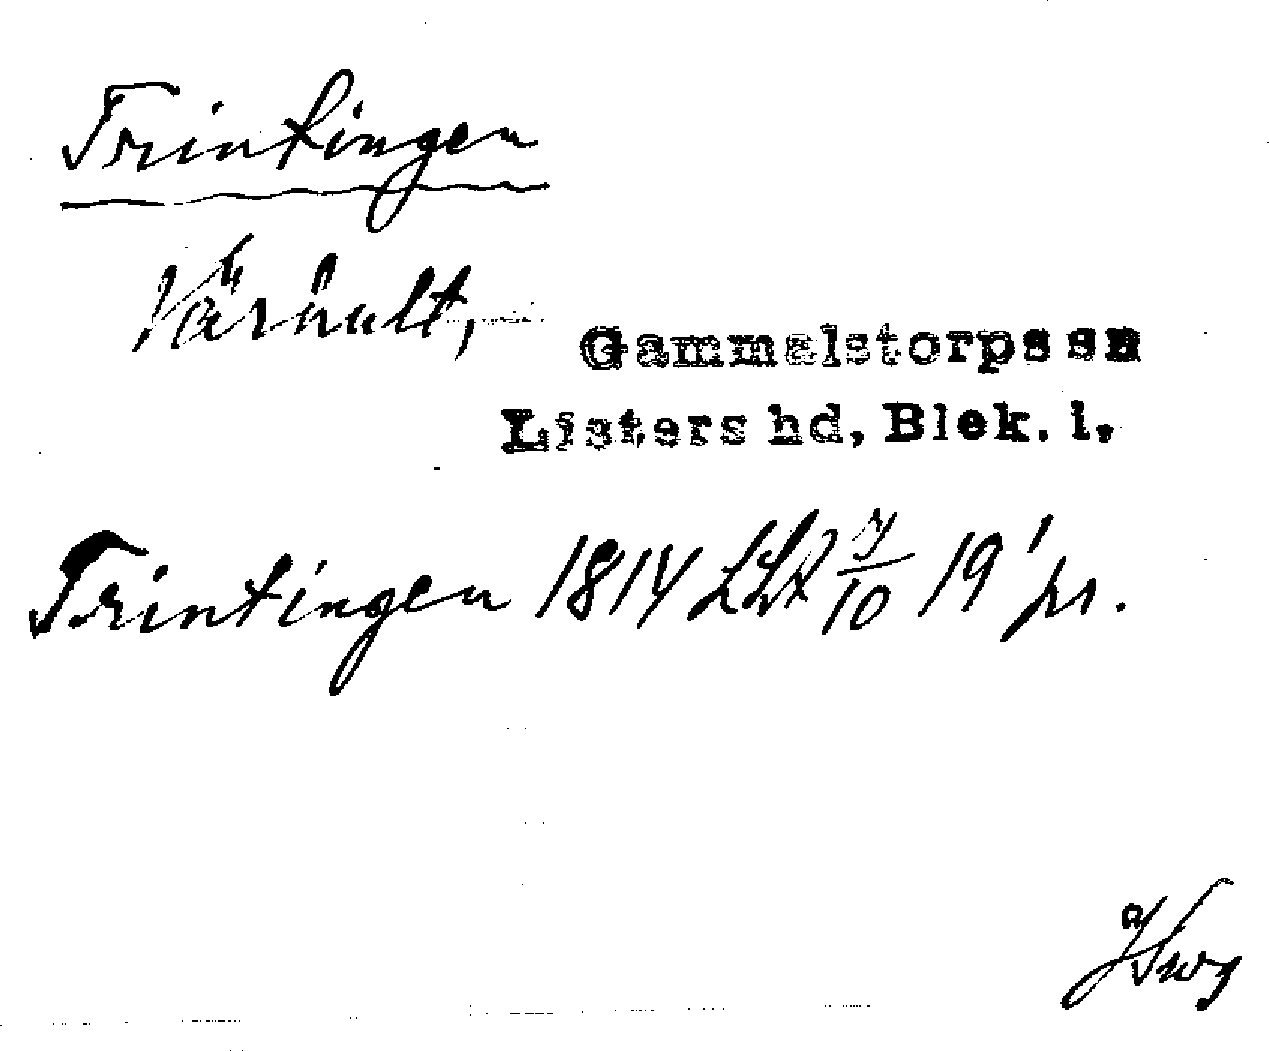 Trintingen
Värhult,
Gammalstorps sn
Listers hd, Blek. l.
Trintingen 1814 LSA 7/10 19' pr.